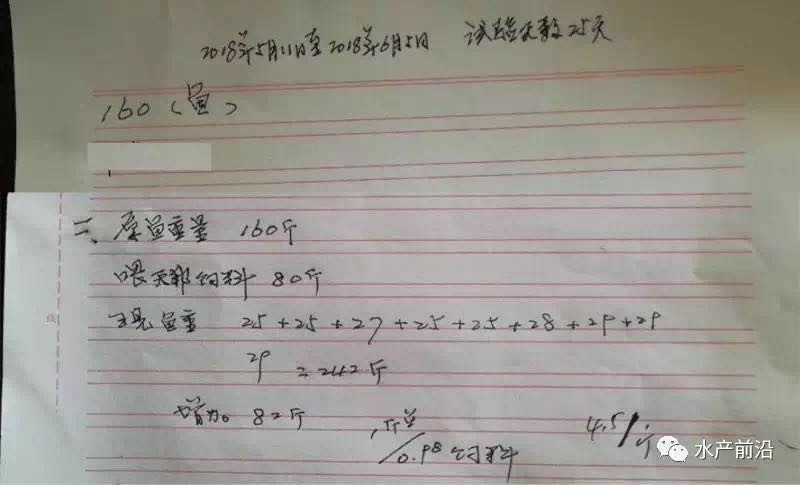 2018年5月11日至2018年6月5日 试验天数25天
160(鱼)
二、原鱼重量 160斤
喂天邦饲料 80斤
现鱼重 25+25+27+25+25+28+29+29
29 =242斤
增加 82斤 1斤鱼/0.98饲料 4.5/斤
水产前沿